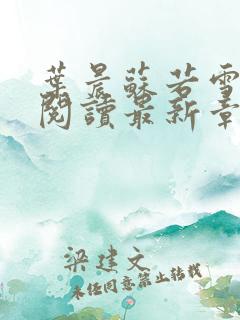 葉晨蘇若雪
閱讀最新章
梁建文
未经同意禁止转载